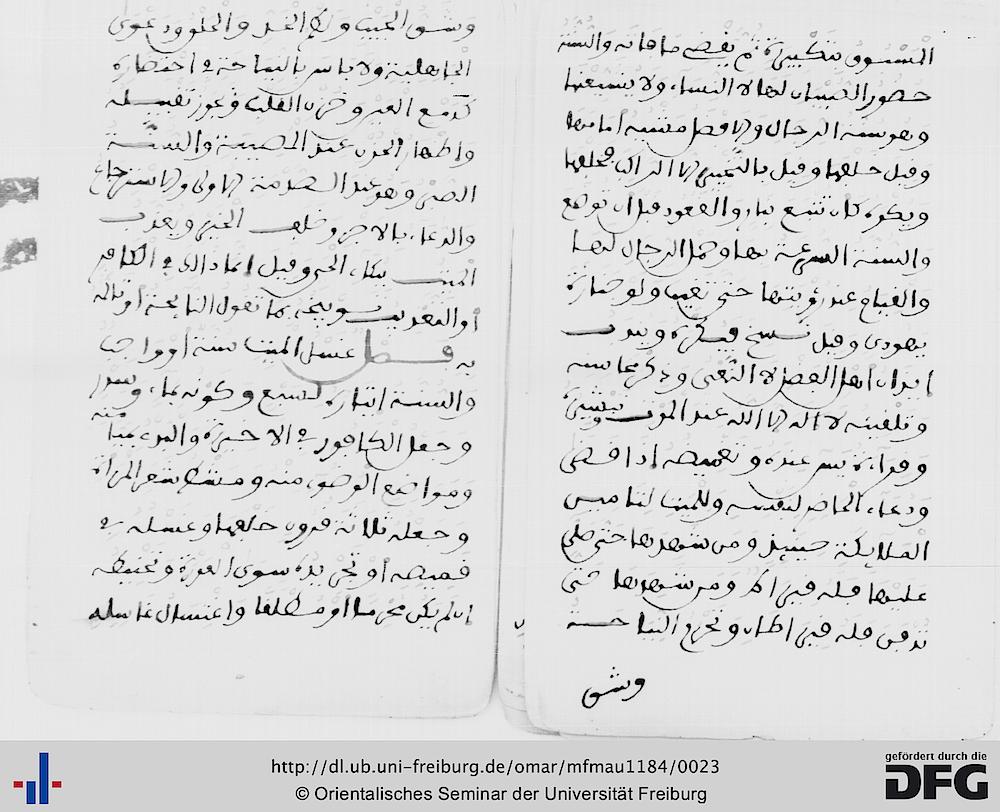 المسبوق بتكبيرة ثم يقضي ما فاته والسنة
حضور الجنازة لها لا النساء ولا يتبعنها
وهو سنة الرجال والافضل مشيه امامها
وقيل خلفها وقيل بالتخيير الا الراكب فخلفها
ويكره كان تتبع بنار والقعود قبل ان توضع
والسنة السرعة بها وحمل الرجال لها
والقيام عند رؤيتها حتى تغيب ولو جنازة
يهودي وقيل نسخ فيكره ويندب
اهل الفضل لا النعي وذكر محاسنه
وتلقينه لا اله الا الله عند الموت
وقراءة يس عنده وتغميضه اذا قضى
ودعاء الحاضر لنفسه وللميت لتامين
الملايكة حينيذ ومن شهدها حتى صلي
عليها فله قيراط ومن شهدها حتى
تدفن فله قيراطان وتحرم النياحة
وشق
وشق الجيب ولطم الخد والحلق ودعوى
الجاهلية ولا باس بالنياحة في احتضاره
كدمع العين وحزن القلب وتجوز تقبيله
واظهار الحزن عند المصيبة والسنة
الصبر وهو عند الصدمة الاولى والاسترجاع
والدعاء بالاجر وخلف الخير ويعذب
الميت ببكاء الحي وقيل انما ذالك في الكافر
او التعذيب توبيخه بما تقول النايحة او
به فصل غسل الميت سنة او واجب
والسنة ايتاره لسبع وكونه بماء وسدر
وجعل الكافور في الاخيرة والبدء بميامنه
ومواضع الوضوء منه ومشط شعر المراة
وجعله ثلاثة قرون خلفها وغسله في
قميصه او تجريده سوى العورة وتحنيطه
ان لم يكن محرما او مطلقا واغتسال غاسله
http://dl.ub.uni-freiburg.de/omar/mfmau1184/0023
© Orientalisches Seminar der Universität Freiburg
gefördert durch die
DFG